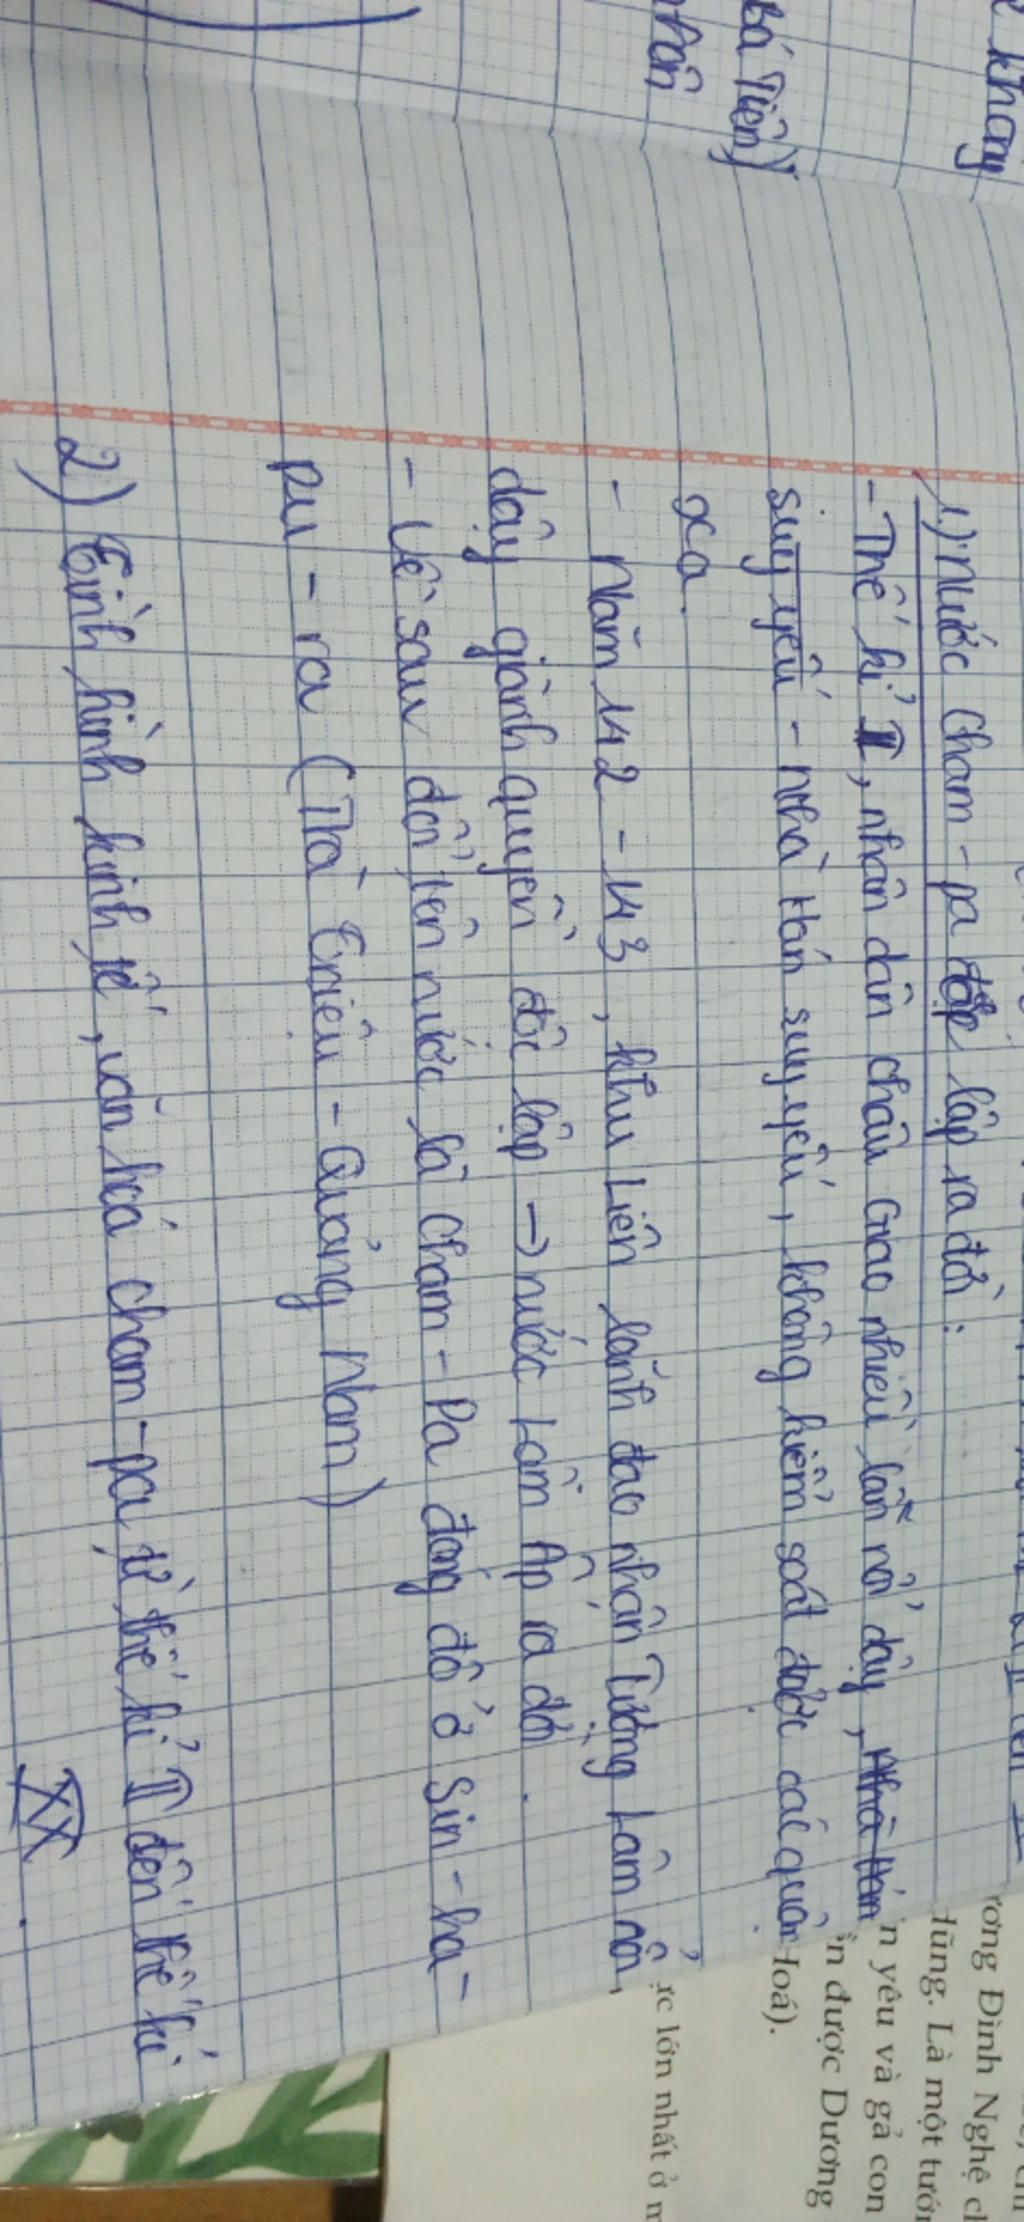 không
Bá Tiên)
nhân
1) Nước Cham-pa độc lập ra đời:
- Thế kỉ II, nhân dân châu Giao nhiều lần nổi dậy, nhà Hán
suy yếu - nhà Hán suy yếu, không kiểm soát được các quận
xa.
- Năm 192 - 193, Khu Liên lãnh đạo nhân Tượng Lâm nổi
dậy giành quyền độc lập → nước Lâm Ấp ra đời.
- Về sau đổi tên nước là Cham-Pa đóng đô ở Sin-ha-
pu-ra (Trà Triệu - Quảng Nam)
2) Tình hình kinh tế, văn hoá Cham-pa từ thế kỉ II đến thế kỉ
XX.
ương Đình Nghệ
Là một tướ
yêu và gả con
được Dương
Hoá).
ực lớn nhất ở